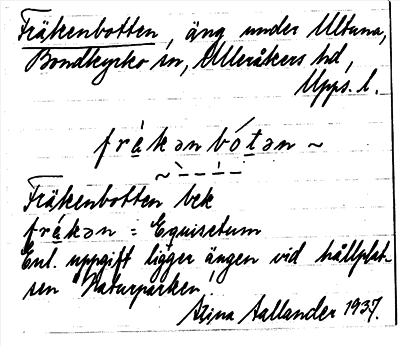 Fräkenbotten, äng under Ultuna,
Bondkyrko sn, Ulleråkers hd,
Upps. l.
frȧ̀kən bótən ~
Fräkenbotten bek
frèkən = Equisetum
Enl. uppgift ligger ängen vid hållplat-
sen Naturparken,
Asina Aallander 1937.